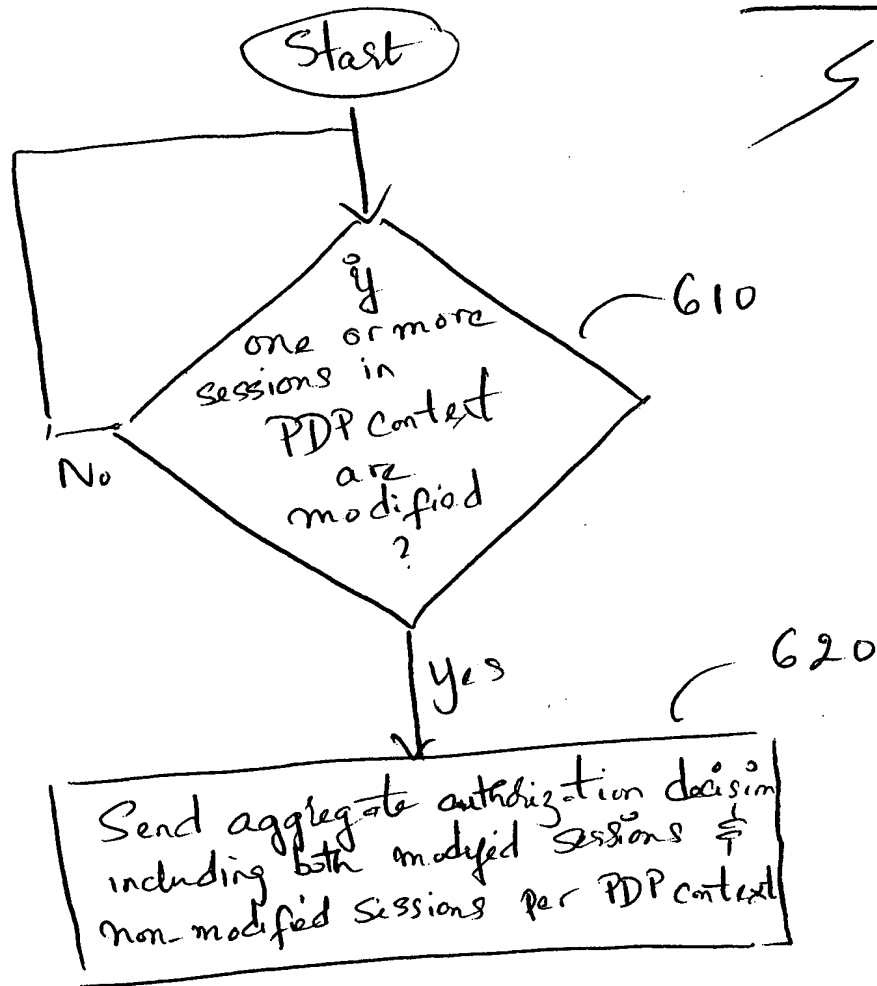 Start
if
one or more
sessions in
PDP context
are
modified
?
610
No
Yes
620
Send aggregate authorization decision
including both modified sessions &
non-modified sessions per PDP context